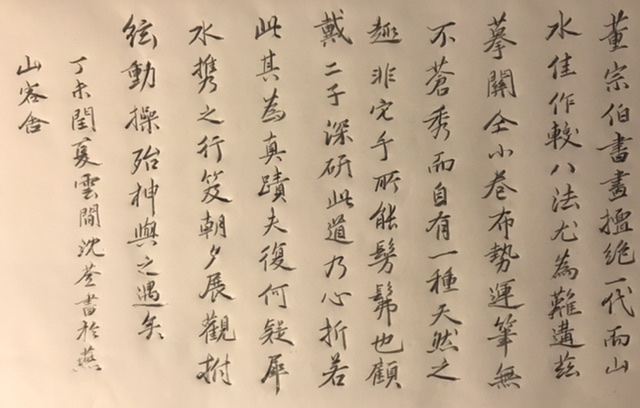 董宗伯書畫擅絕一代而山
水佳作較八法尤為難遘茲
摹關仝小卷布勢運筆無
不蒼秀而自有一種天然之
趣非完手所能髣髴也顧
戴二子深研此道乃心折若
此其為真蹟夫復何疑犀
水携之行笈朝夕展觀拊
絃動操殆神與之遇矣
丁未閏夏雲間沈荃書於燕
山客舍